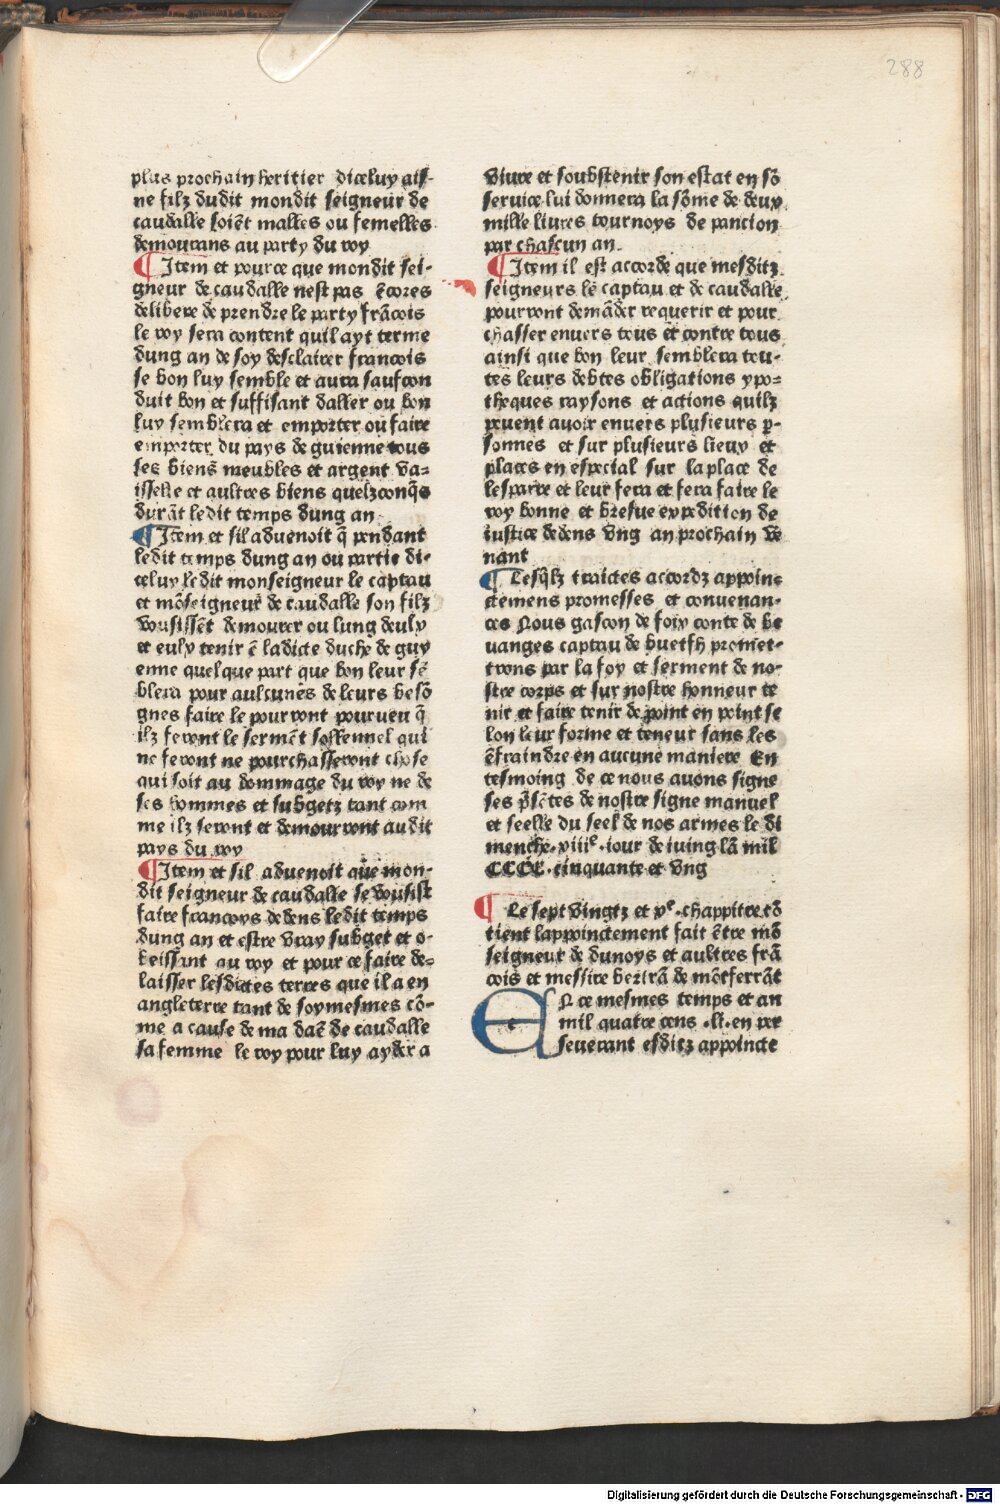 288
plus prochain heritier diceluy ais-
ne filz dudit mondit seigneur de
caudalle soiēt malles ou femelles
demourans au party du roy
¶ Item et pource que mondit sei-
gneur de caudalle nest pas ēcores
delibere de prendre le party frācois
le roy sera content quil ayt terme
dung an de soy desclairer francois
se bon luy semble et aura saufcon
duit bon et suffisant daller ou bon
luy semblera et emporter ou faire
emporter du pays de guienne tous
ses biens meubles et argent va-
isselle et aultres biens quelzconq̄s
durāt ledit temps dung an
¶ Item et sil aduenoit q̄ pendant
ledit temps dung an ou partie di-
celuy ledit monseigneur le captau
et mōseigneur de caudalle son filz
vousissēt demourer ou lung deulx
et eulx tenir ē ladicte duche de guy
enne quelque part que bon leur sē
blera pour aulcunes de leurs besō
gnes faire le pourront pourueu q̄
ilz feront le sermēt sollennel qui
ne feront ne pourchasseront chose
qui soit au dommage du roy ne de
ses hommes et subgetz tant com
me ilz seront et demourront audit
pays du roy
¶ Item et sil aduenoit que mon-
dit seigneur de caudalle se vousist
faire francoys dedens ledit temps
dung an et estre vray subget et o-
beissant au roy et pour ce faire de-
laisser lesdictes terres que il a en
angleterre tant de soy mesmes cō-
me a cause de ma daē de caudalle
sa femme le roy pour luy ayder a
viure et soubstenir son estat en sō
seruice lui donnera la sōme de deux
mille liures tournoys de pancion
par chascun an.
¶ Item il est accorde que mesditz
seigneurs le captau et de caudalle
pourront demāder requerir et pour
chasser enuers tous et contre tous
ainsi que bon leur semblera tou-
tes leurs debtes obligations ypo-
theques raysons et actions quilz
peuent auoir enuers plusieurs p-
sonnes et sur plusieurs lieux et
places en especial sur la place de
lesparre et leur fera et fera faire le
roy bonne et briefue expedition de
iustice dedens vng an prochain ve
nant
¶ Lesq̄lz traictes accordz appoin-
ctemens promesses et conuenan-
ces Nous gascon de foix conte de be
uanges captau de buetfh promet-
trons par la foy et serment de no-
stre corps et sur nostre honneur te
nir et faire tenir de point en point se
lon leur forme et teneur sans les
ēfraindre en aucune maniere En
tesmoing de ce nous auons signe
ses p̄sētes de nostre signe manuel
et seelle du seel de nos armes le di
menche .xiiiᵉ. iour de iuing lā mil
CCCC. cinquante et vng
¶ Le sept vingtz et xᵉ. chappitre cō
tient lappoinctement fait ētre mō
seigneur de dunoys et aultres frā
cois et messire bertrā de mōtferrāt
EN ce mesmes temps et an
mil quatre cens .li. en per
seuerant esditz appoincte
Digitalisierung gefördert durch die Deutsche Forschungsgemeinschaft - DFG